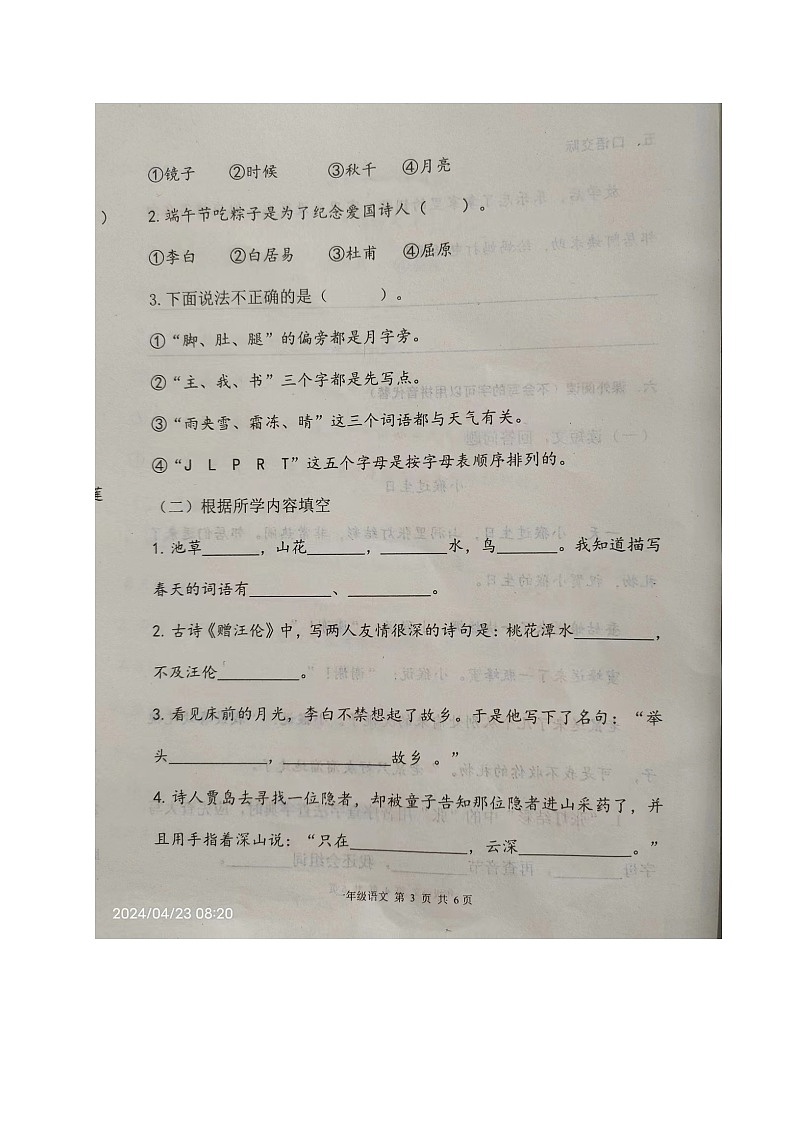 ①镜子 ②时候 ③秋千 ④月亮
) 2.端午节吃粽子是为了纪念爱国诗人( )。
①李白 ②白居易 ③杜甫 ④屈原
3.下面说法不正确的是( )。
①“脚、肚、腿”的偏旁都是月字旁。
②“主、我、书”三个字都是先写点。
③“雨夹雪、霜冻、晴”这三个词语都与天气有关。
④“J L P R T”这五个字母是按字母表顺序排列的。
(二)根据所学内容填空
1.池草______,山花______,_______水,鸟______。我知道描写
春天的词语有_________、_________。
2.古诗《赠汪伦》中,写两人友情很深的诗句是:桃花潭水________,
不及汪伦________。
3.看见床前的月光,李白不禁想起了故乡。于是他写下了名句:“举
头__________,___________故乡 。”
4.诗人贾岛去寻找一位隐者,却被童子告知那位隐者进山采药了,并
且用手指着深山说:“只在____________,云深___________。”
一年级语文 第 3 页 共 6 页
2024/04/23 08:20